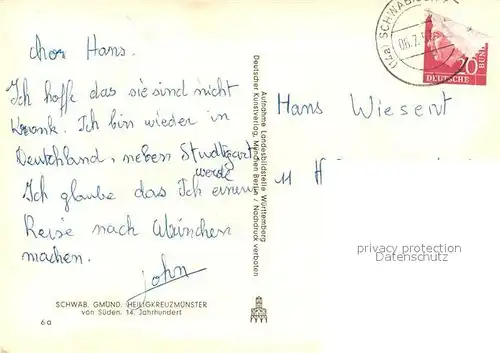 Cher Hans.
Ich hoffe das sie sind nicht
Kronk. Ich bin wieder in
Deutchland, neben Studtgart
werde
Ich glaube das Ich einen
Reise nach München
machen.
John
SCHWÄB. GMÜND. HEILIGKREUZMÜNSTER
von Süden. 14. Jahrhundert
6a
Aufnahme Landesbildstelle Württemberg
Deutscher Kunstverlag, München Berlin / Nachdruck verboten
(14a) SCHWÄBISCH
06.7.
20
DEUTSCHE BUN
Hans Wiesent
11 H
privacy protection
Datenschutz